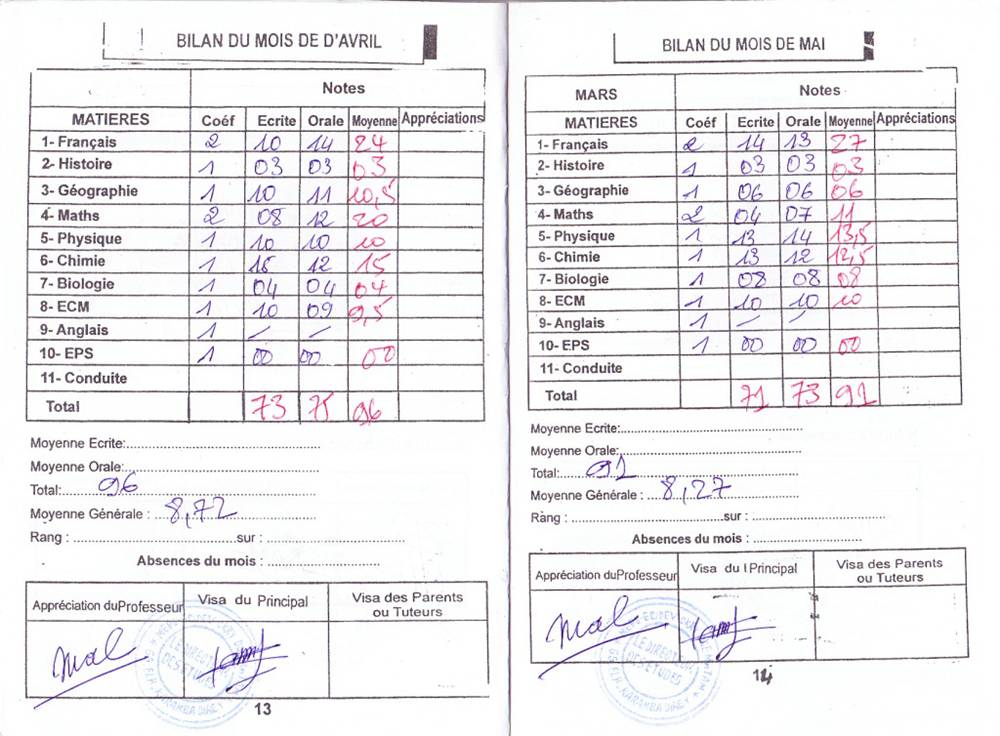 BILAN DU MOIS DE D'AVRIL
Notes
MATIERES Coéf Ecrite Orale Moyenne Appréciations
1- Français 2 10 14 24
2- Histoire 1 03 03 03
3- Géographie 1 10 11 10,5
4- Maths 2 08 12 20
5- Physique 1 10 10 10
6- Chimie 1 12 15
7- Biologie 1 04 04 04
8- ECM 1 10 09 9,5
9- Anglais 1 — —
10- EPS 1 00 00 00
11- Conduite
Total 73 75 96
Moyenne Ecrite:
Moyenne Orale:
Total: 96
Moyenne Générale : 8,72
Rang : sur :
Absences du mois :
Appréciation du Professeur Visa du Principal Visa des Parents
ou Tuteurs
mal
LE DIRECTEUR
DES ETUDES
13
BILAN DU MOIS DE MAI
MARS Notes
MATIERES Coéf Ecrite Orale Moyenne Appréciations
1- Français 2 14 13 27
2- Histoire 1 03 03 03
3- Géographie 1 06 06 06
4- Maths 2 04 07 11
5- Physique 1 13 14 13,5
6- Chimie 1 13 12 12,5
7- Biologie 1 08 08 08
8- ECM 1 10 10 10
9- Anglais 1 — —
10- EPS 1 00 00 00
11- Conduite
Total 71 73 91
Moyenne Ecrite:
Moyenne Orale:
Total: 91
Moyenne Générale : 8,27
Rang : sur :
Absences du mois :
Appréciation du Professeur Visa du Principal Visa des Parents
ou Tuteurs
mal
LE DIRECTEUR
DES ETUDES
14